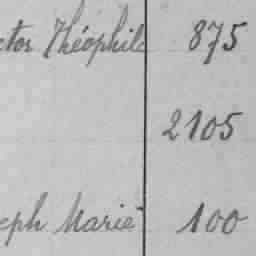 ctor Théophile 875
2105
eph Marie 100